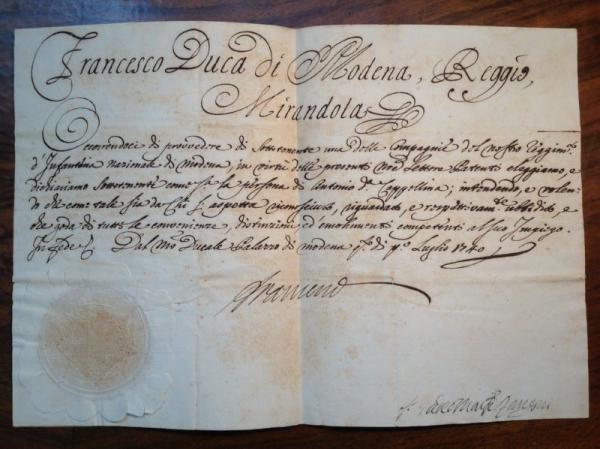 Francesco Duca di Modena, Reggio,
Mirandola
Occorrendoci di provvedere di Sottotenente una delle Compagnie del nostro Reggim.to
d'Infanteria Nazionale di Modena, in virtù delle presenti Nře Lettere Patenti eleggiamo, e
dichiariamo Sottotenente come s.a la persona di Antonio Cappellina; intendendo, e volen
do che come tale sia da Chi s'aspetta riconosciuto, riguardato, e respettivam.te ubbidito, e
che goda di tutte le convenienze, distinzioni ed emolumenti competenti al suo Impiego.
In fede Dal Nřo Ducale Palazzo di Modena q.to dì p.o Luglio 1740
Francesco